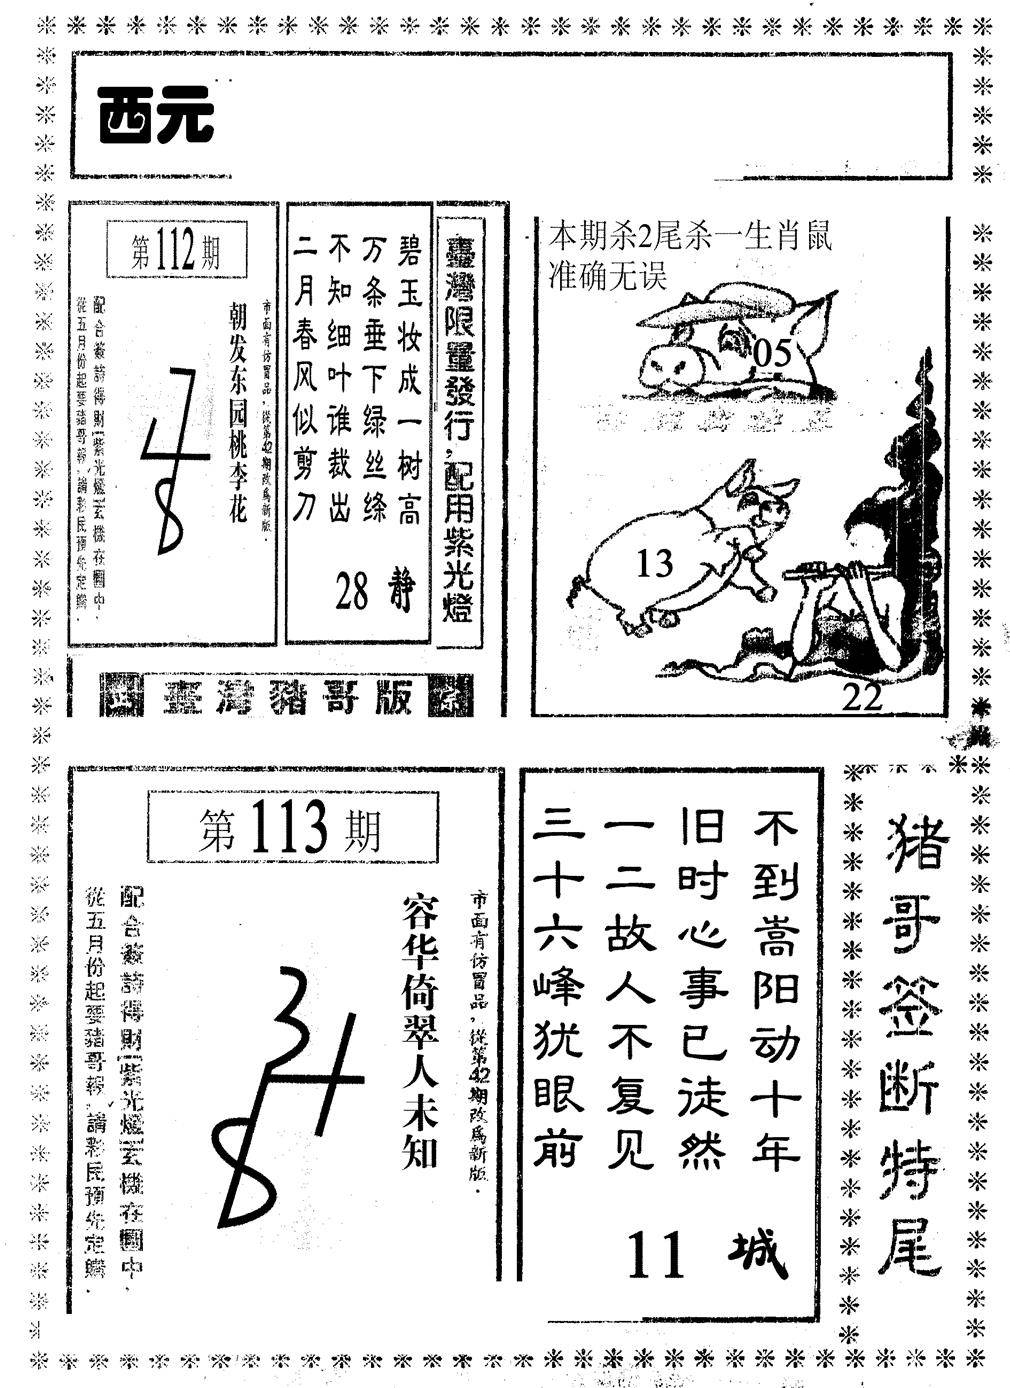 西元
本期杀2尾杀一生肖鼠
准确无误
05
13
22
臺灣限量發行，配用紫光燈
碧玉妆成一树高
万条垂下绿丝绦
不知细叶谁裁出
二月春风似剪刀
28 静
第112期
市面有仿冒品，從第42期改爲新版．
朝发东园桃李花
7
4
8
配合簽詩得財紫光燈玄機在圖中．
從五月份起要豬哥報，請彩民預先定購．
臺灣豬哥版
第113期
市面有仿冒品，從第42期改爲新版．
容华倚翠人未知
3
4
8
配合簽詩得財紫光燈玄機在圖中．
從五月份起要豬哥報，請彩民預先定購．
不到嵩阳动十年
旧时心事已徒然
一二故人不复见
三十六峰犹眼前
11 城
猪哥签断特尾